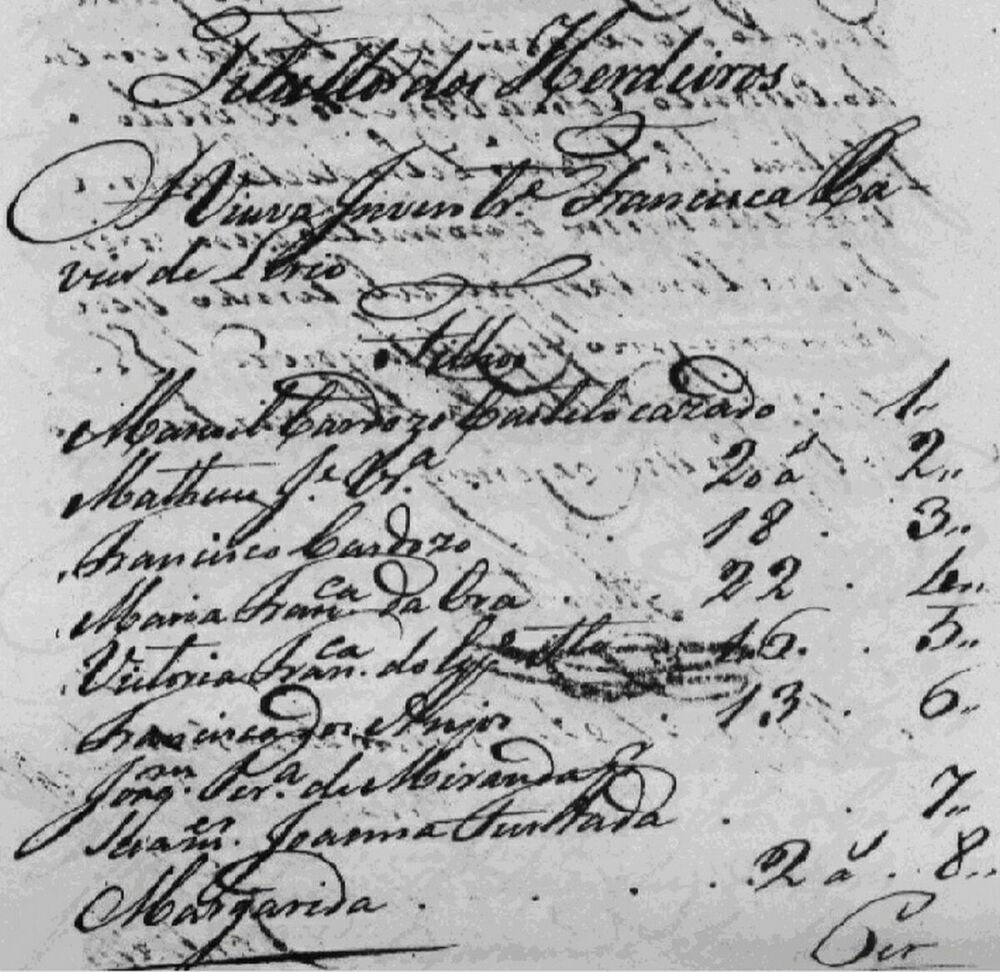 Titullo dos Herdeiros
A Viuva Invent.rᵉ Francisca Xa
vier de Lirio
Filhos
Manoel Cardozo Castelo cazado . 1,,
Matheus J.ᵉ 20 á 2,,
Francisco Cardozo . . 18 . 3,,
Maria Fran.ᶜᵃ da Cra . . 22 . 4,,
Victoria Fran.ᶜᵃ do 16 . . 5,,
Francisca dos Anjos . . 13 . 6,,
Joaq.ᵐ Per.ᵃ de Miranda
Joanna Furtada . . 7,,
Margarida . . . . 2 á . 8,,